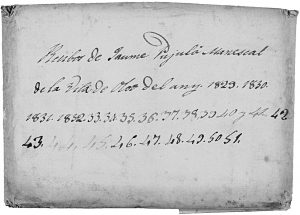 Recibos de Jaume Pujuló Manescal
de la Vila de Olot del any 1829. 1830.
1831. 1832. 33. 34. 35. 36. 37. 38. 39. 40 y 41. 42
43. 44. 45. 46. 47. 48. 49. 50 51.